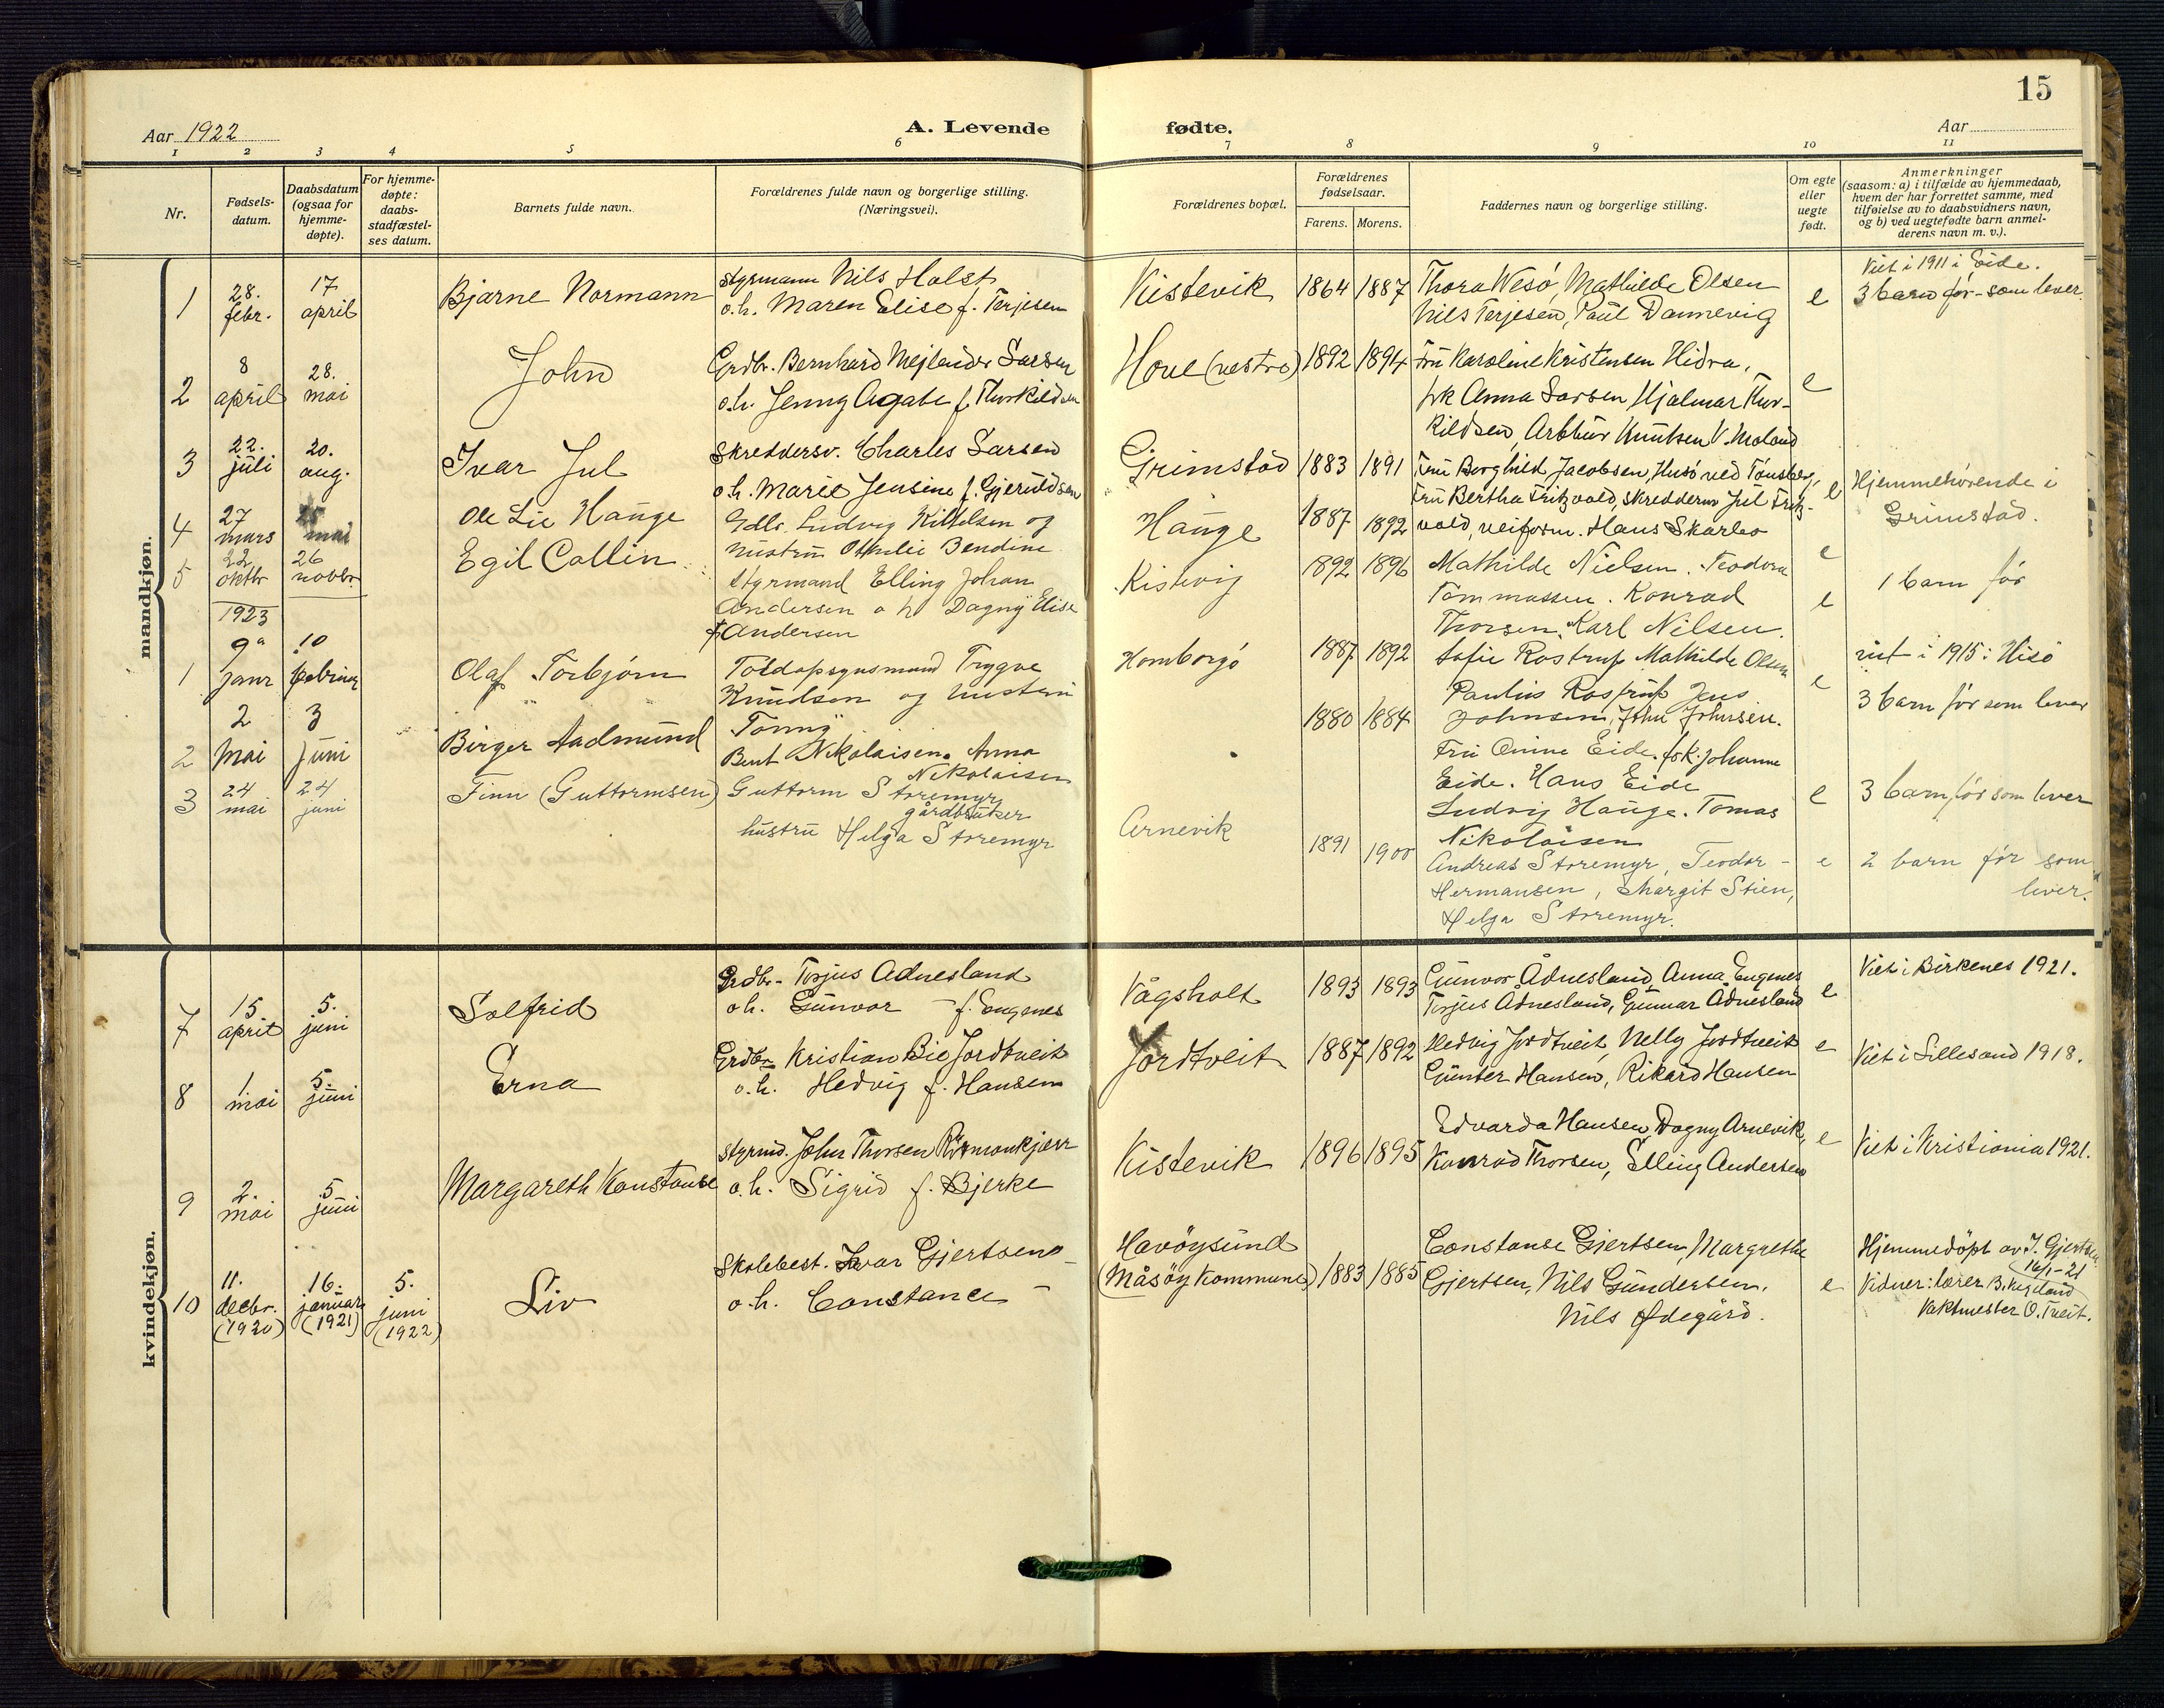 15
Aar 1922
A. Levende fødte.
Aar
1 2 3 4 5 6 7 8 9 10 11
Nr.
Fødsels-
datum.
Daabsdatum
(ogsaa for
hjemme-
døpte).
For hjemme-
døpte:
daabs-
stadfæstel-
ses datum.
Barnets fulde navn.
Forældrenes fulde navn og borgerlige stilling.
(Næringsvei).
Forældrenes bopæl.
Forældrenes
fødselsaar.
Farens. Morens.
Faddernes navn og borgerlige stilling.
Om egte
eller
uegte
født.
Anmerkninger
(saasom: a) i tilfælde av hjemmedaab,
hvem der har forrettet samme, med
tilføielse av to daabsvidners navn,
og b) ved uegtefødte barn anmel-
derens navn m. v.).
mandkjøn.
1
28.
febr.
17
april
Bjarne Normann
Styrmann Nils Holst
o.h. Maren Elise f. Terjesen
Kistevik
1864 1887
Thora Wesö, Mathilde Olsen
Nils Terjesen, Paul Dannevig
e
Viet i 1911 i Eide.
3 barn før - som lever.
2
8
april
28.
mai
John
Grdbr. Bernhard Mejlænder Larsen
o.h. Jenny Agate f. Thorkildsen
Hove (vestre)
1892 1894
Fru Karoline Kristensen Hidra,
frk Anna Larsen, Hjalmar Thor-
kildsen, Arthur Knutsen V. Moland
e
3
22.
juli
20.
aug.
Ivar Jul
Skreddersv. Charles Larsen
o.h. Marie Jensine f. Gjeruldsen
Grimstad
1883 1891
Fru Borghild Jacobsen, Husö ved Tønsberg,
Fru Bertha Fritzvold, skredderm Jul Fritz-
vold, veiform. Hans Skarbo
e
Hjemmehörende i
Grimstad.
4
27
mars
mai
Ole Lie Hauge
Gdbr. Ludvig Kittelsen og
hustru Othilie Bendine
Hauge
1887 1892
e
5
22
oktbr
26
novbr
Egil Collin
Styrmand Elling Johan
Andersen o h Dagny Elise
f Andersen
Kistevig
1892 1896
Mathilde Nielsen. Teodora
Tommassen. Konrad
Thorsen. Karl Nilsen.
e
1 barn før
1923
1
9
janr
10
februar
Olaf Torbjørn
Toldopsynsmand Trygve
Knudsen og hustru
Tonny
Homborgö
1887 1892
Sofie Rostrup Mathilde Olsen
Paulus Rostrup Jens
Johnsen, John Johnsen.
e
viet i 1915 i Hisö
3 barn før som lever
2
2
mai
3
juni
Birger Aadmund
Bent Nikolaisen. Anna
Nikolaisen
1880 1884
Fru Omine Eide. frk. Johanne
Eide. Hans Eide
Ludvig Hauge. Tomas
Nikolaisen
e
3 barn før som lever
3
24
mai
24
juni
Finn (Guttormsen)
Guttorm Storemyr
gårdbruker
hustru Helga Storemyr
Arnevik
1891 1900
Andreas Storemyr, Teodor -
Hermansen, Margit Stien,
Helga Storemyr.
e
2 barn før som
lever.
kvindekjøn.
7
15
april
5.
juni
Solfrid
Grdbr. Torjus Adnesland
o h. Gunvor f. Engenes
Vågsholt
1893 1893
Gunvor Ådnesland, Anna Engenes
Torjus Ådnesland, Gunnar Ådnesland
e
Viet i Birkenes 1921.
8
1
mai
5.
juni
Erna
Grdbr Kristian Bie Jordtveit
o. h. Hedvig f. Hansen
Jordtveit
1887 1892
Hedvig Jordtveit, Nelly Jordtveit
Günter Hansen, Rikard Hansen
e
Viet i Lillesand 1918.
9
2.
mai
5
juni
Margareth Konstanse
Styrmd. John Thorsen Römankjær
o. h. Sigrid f. Bjerke
Kistevik
1896 1895
Edvarda Hansen, Dagny Arnevik,
Konrad Thorsen, Elling Andersen
e
Viet i Kristiania 1921.
10
11.
decbr.
(1920)
16.
januar
(1921)
5.
juni
(1922)
Liv
Skolebest. Ivar Gjertsen
o. h. Constance
Havöysund
(Måsöy Kommune)
1883 1885
Constanse Gjertsen, Margrethe
Gjertsen, Nils Gundersen.
Nils Ødegård.
e
Hjemmedöpt av I. Gjertsen
16/1-21
Vidner: lærer B.
Vaktmester O. Tveit.